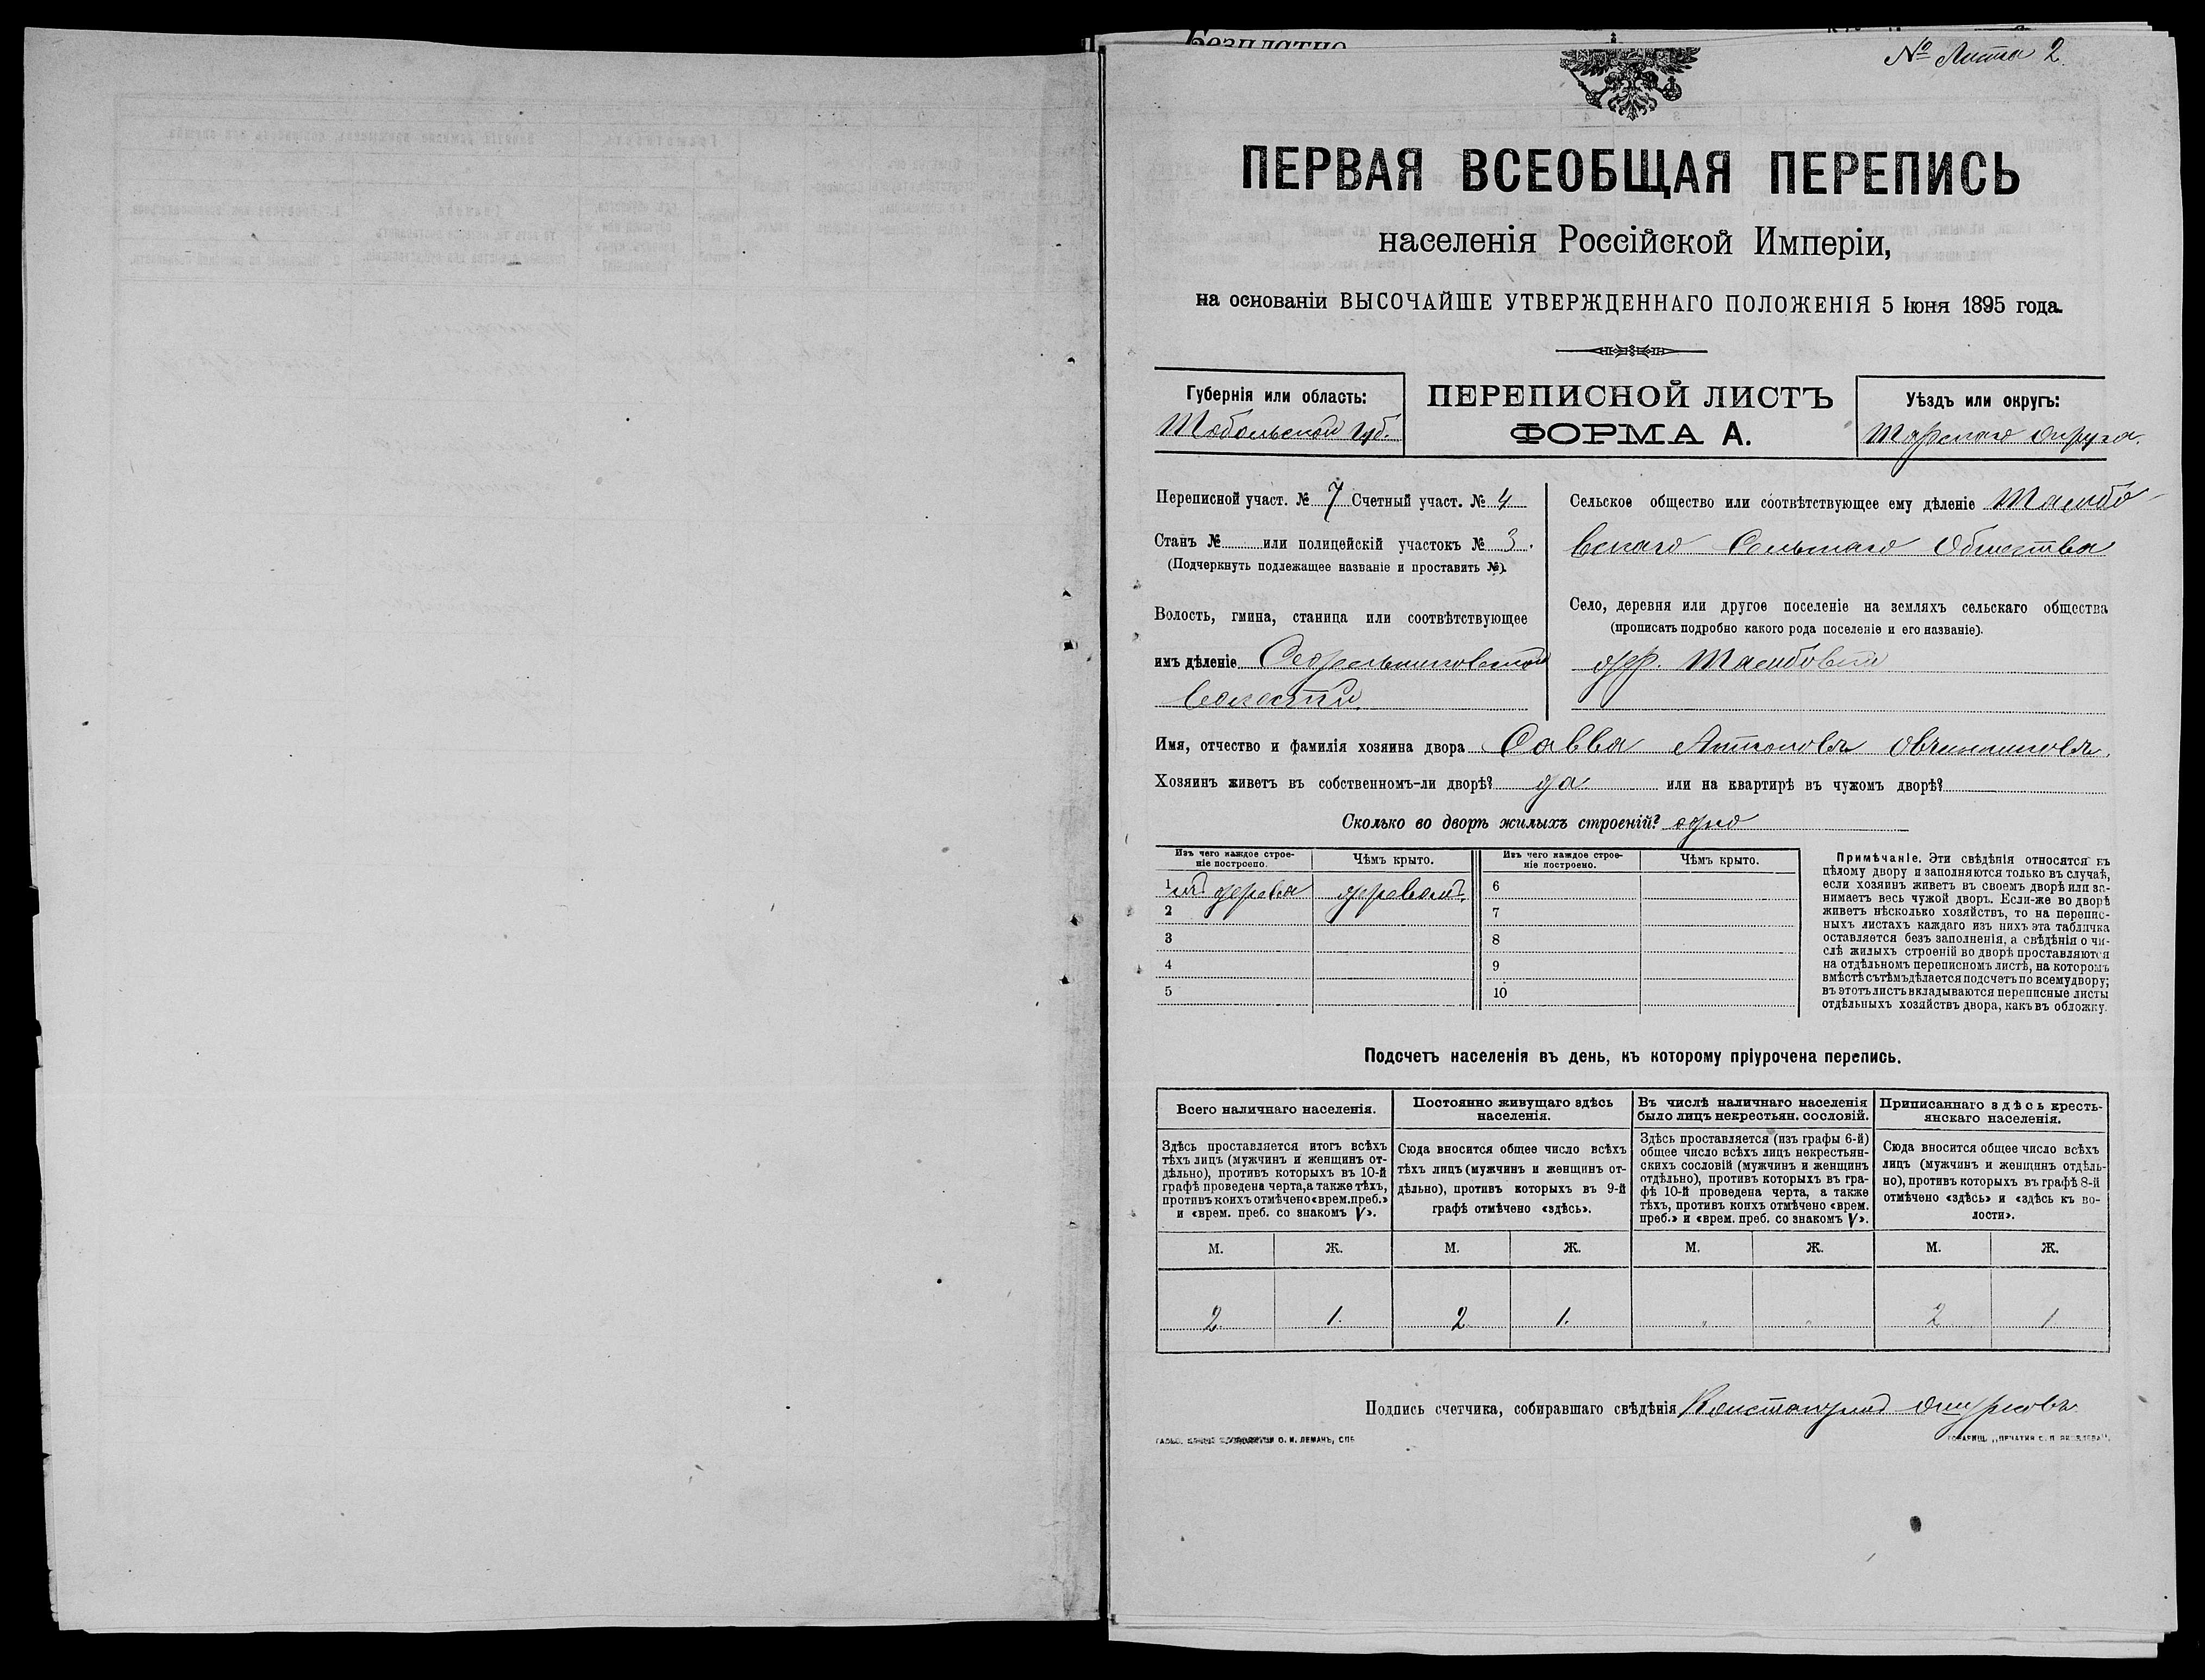 Безплатно
№ Листа 2
ПЕРВАЯ ВСЕОБЩАЯ ПЕРЕПИСЬ
населенія Россійской Имперіи,
на основаніи ВЫСОЧАЙШЕ УТВЕРЖДЕННАГО ПОЛОЖЕНІЯ 5 Іюня 1895 года.
Губернія или область:
Тобольской губ.
ПЕРЕПИСНОЙ ЛИСТЪ
ФОРМА А.
Уѣздъ или округъ:
Тарскаго округа.
Переписной участ. № 7 Счетный участ. № 4
Станъ № или полицейскій участокъ № 3.
(Подчеркнуть подлежащее названіе и проставить №).
Волость, гмина, станица или соотвѣтствующее
имъ дѣленіе Седельниковской
волости.
Сельское общество или соотвѣтствующее ему дѣленіе
Сельскаго Общества
Село, деревня или другое поселеніе на земляхъ сельскаго общества
(прописать подробно какого рода поселеніе и его названіе).
дер.
Имя, отчество и фамилія хозяина двора Савва Антоновъ Овчинниковъ.
Хозяинъ живетъ въ собственномъ-ли дворѣ? да или на квартирѣ въ чужомъ дворѣ?
Сколько во дворѣ жилыхъ строеній? одно
Изъ чего каждое строе-
ніе построено.
Чѣмъ крыто.
Изъ чего каждое строе-
ніе построено.
Чѣмъ крыто.
1 изъ дерева деревомъ. 6
2 7
3 8
4 9
5 10
Примѣчаніе. Эти свѣдѣнія относятся къ
цѣлому двору и заполняются только въ случаѣ,
если хозяинъ живетъ въ своемъ дворѣ или за-
нимаетъ весь чужой дворъ. Если-же во дворѣ
живетъ нѣсколько хозяйствъ, то на перепис-
ныхъ листахъ каждаго изъ нихъ эта табличка
оставляется безъ заполненія, а свѣдѣнія о чи-
слѣ жилыхъ строеній во дворѣ проставляются
на отдѣльномъ переписномъ листѣ, на которомъ
вмѣстѣ съ тѣмъ дѣлается подсчетъ по всему двору;
въ этотъ листъ вкладываются переписные листы
отдѣльныхъ хозяйствъ двора, какъ въ обложку.
Подсчетъ населенія въ день, къ которому пріурочена перепись.
Всего наличнаго населенія.
Здѣсь проставляется итогъ всѣхъ
тѣхъ лицъ (мужчинъ и женщинъ от-
дѣльно), противъ которыхъ въ 10-й
графѣ проведена черта, а также тѣхъ,
противъ коихъ отмѣчено «врем. преб.»
и «врем. преб. со знакомъ V».
Постоянно живущаго здѣсь
населенія.
Сюда вносится общее число всѣхъ
тѣхъ лицъ (мужчинъ и женщинъ от-
дѣльно), противъ которыхъ въ 9-й
графѣ отмѣчено «здѣсь».
Въ числѣ наличнаго населенія
было лицъ некрестьян. сословій.
Здѣсь проставляется (изъ графы 6-й)
общее число всѣхъ лицъ некрестьян-
скихъ сословій (мужчинъ и женщинъ
отдѣльно), противъ которыхъ въ гра-
фѣ 10-й проведена черта, а также
тѣхъ, противъ коихъ отмѣчено «врем.
преб.» и «врем. преб. со знакомъ V».
Приписаннаго здѣсь кресть-
янскаго населенія.
Сюда вносится общее число всѣхъ
лицъ (мужчинъ и женщинъ отдѣль-
но), противъ которыхъ въ графѣ 8-й
отмѣчено «здѣсь» и «здѣсь къ во-
лости».
М. Ж. М. Ж. М. Ж. М. Ж.
2 1. 2 1. " " 2 1
Подпись счетчика, собиравшаго свѣдѣнія
О. И. ЛЕМАНЪ, СПБ
ТОВАРИЩ. „ПЕЧАТНЯ С. П. ЯКОВЛЕВА".